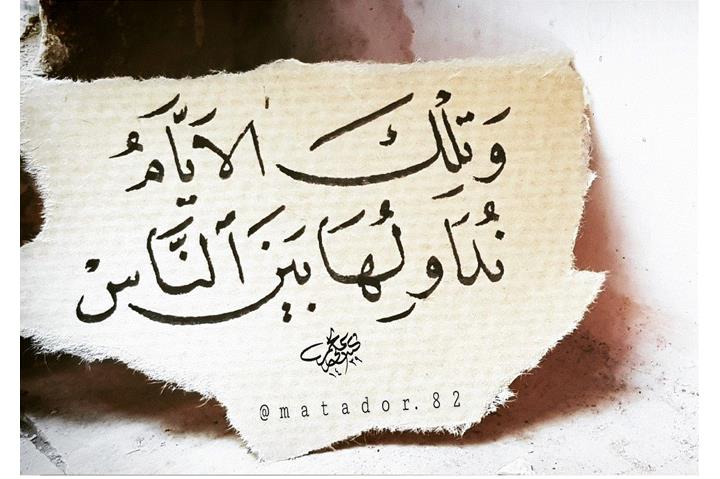 وَتِلْكَ الايَّامُ
نُدَاوِلُهَا بَيْنَ ٱلنَّاسْ
@matador.82